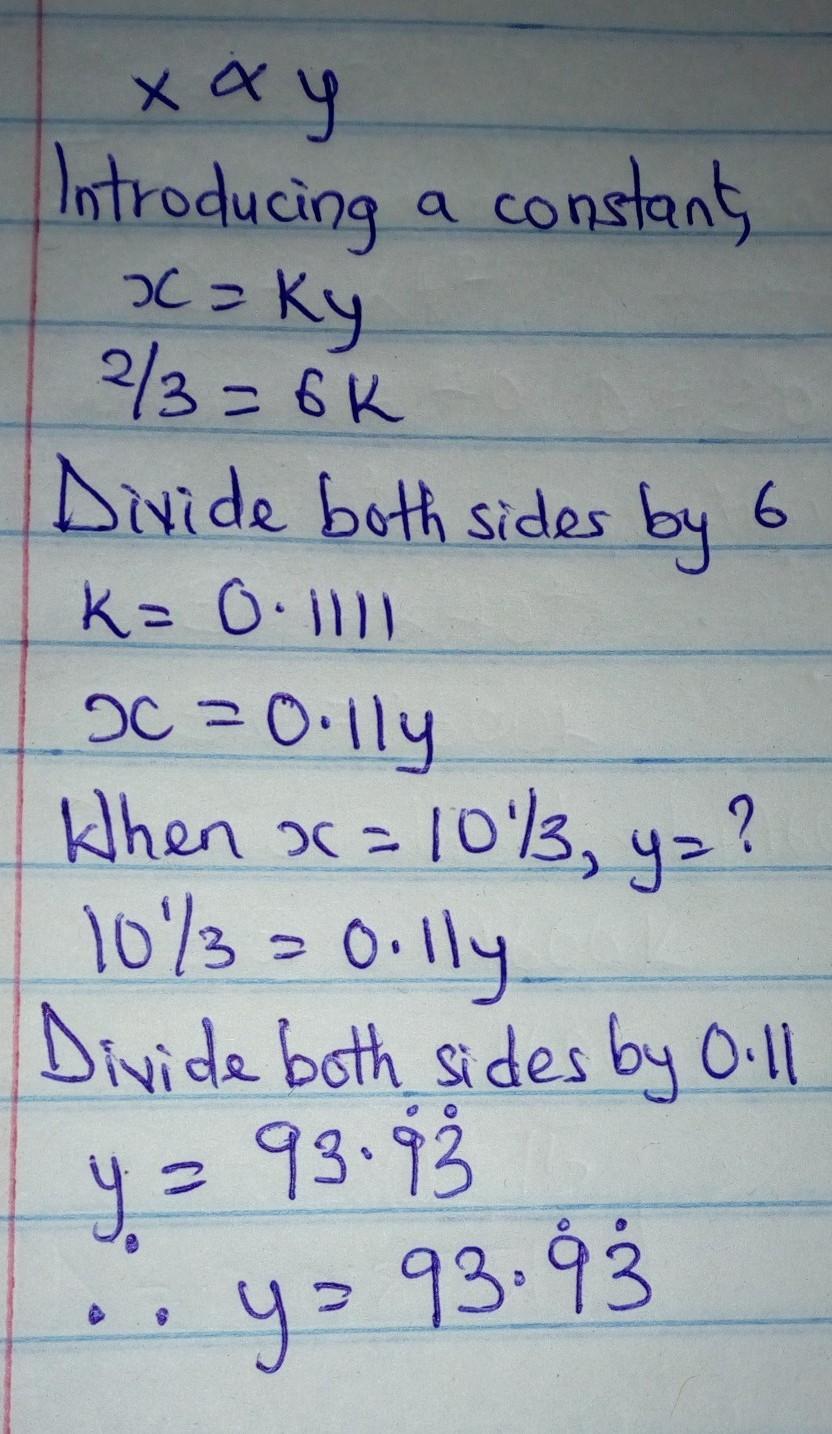 x ∝ y
Introducing a constant,
x = Ky
2/3 = 6K
Divide both sides by 6
K = 0.1111
x = 0.11y
When x = 10 1/3, y = ?
10 1/3 = 0.11y
Divide both sides by 0.11
y = 93.9̇3̇
∴ y = 93.9̇3̇